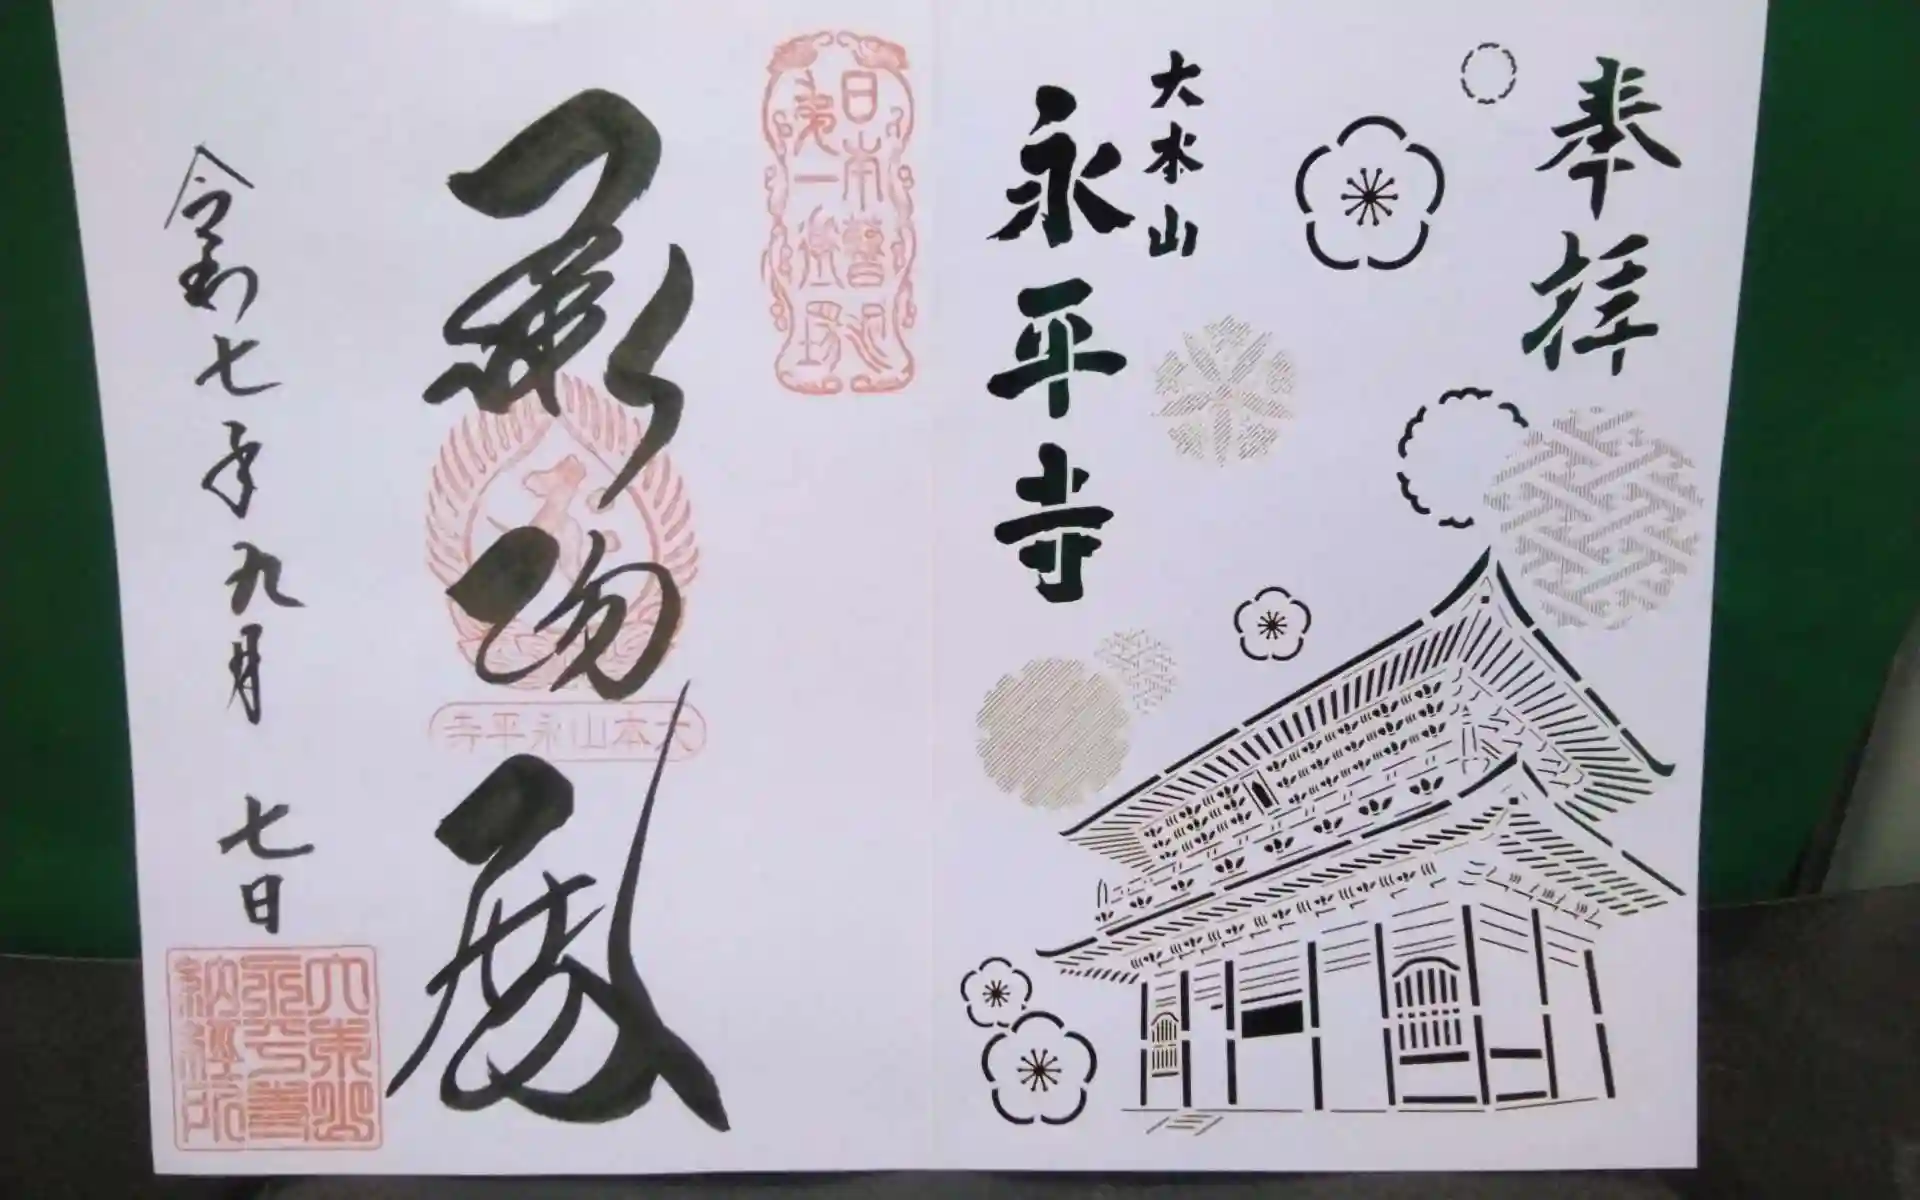 奉拝
大本山
永平寺
日本曹洞
第一道場
承陽殿
大本山永平寺
令和七年九月七日
大本山
永平寺
納經所